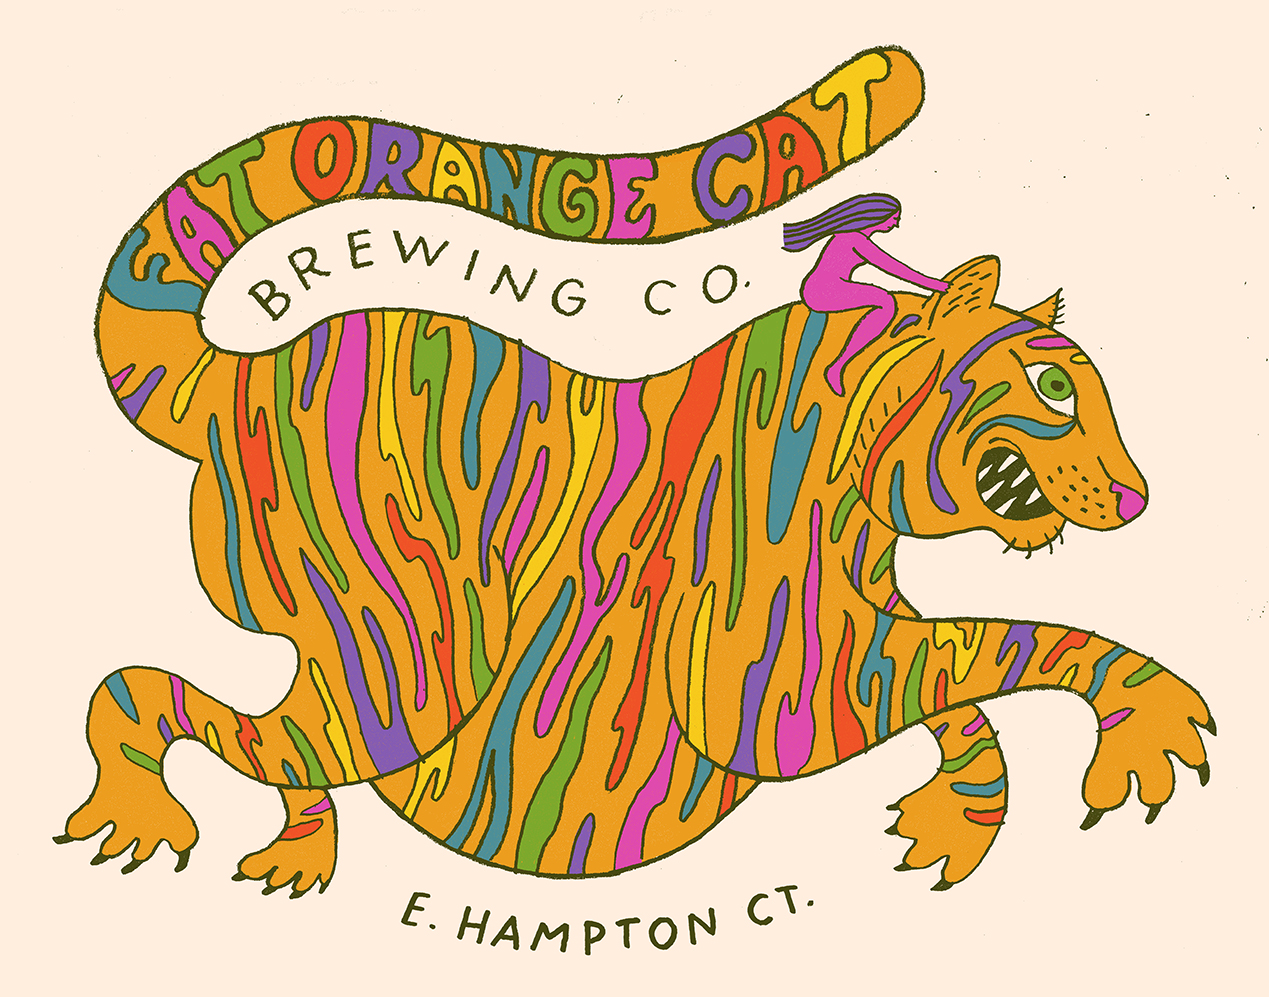 FAT ORANGE CAT
BREWING CO.
E. HAMPTON CT.